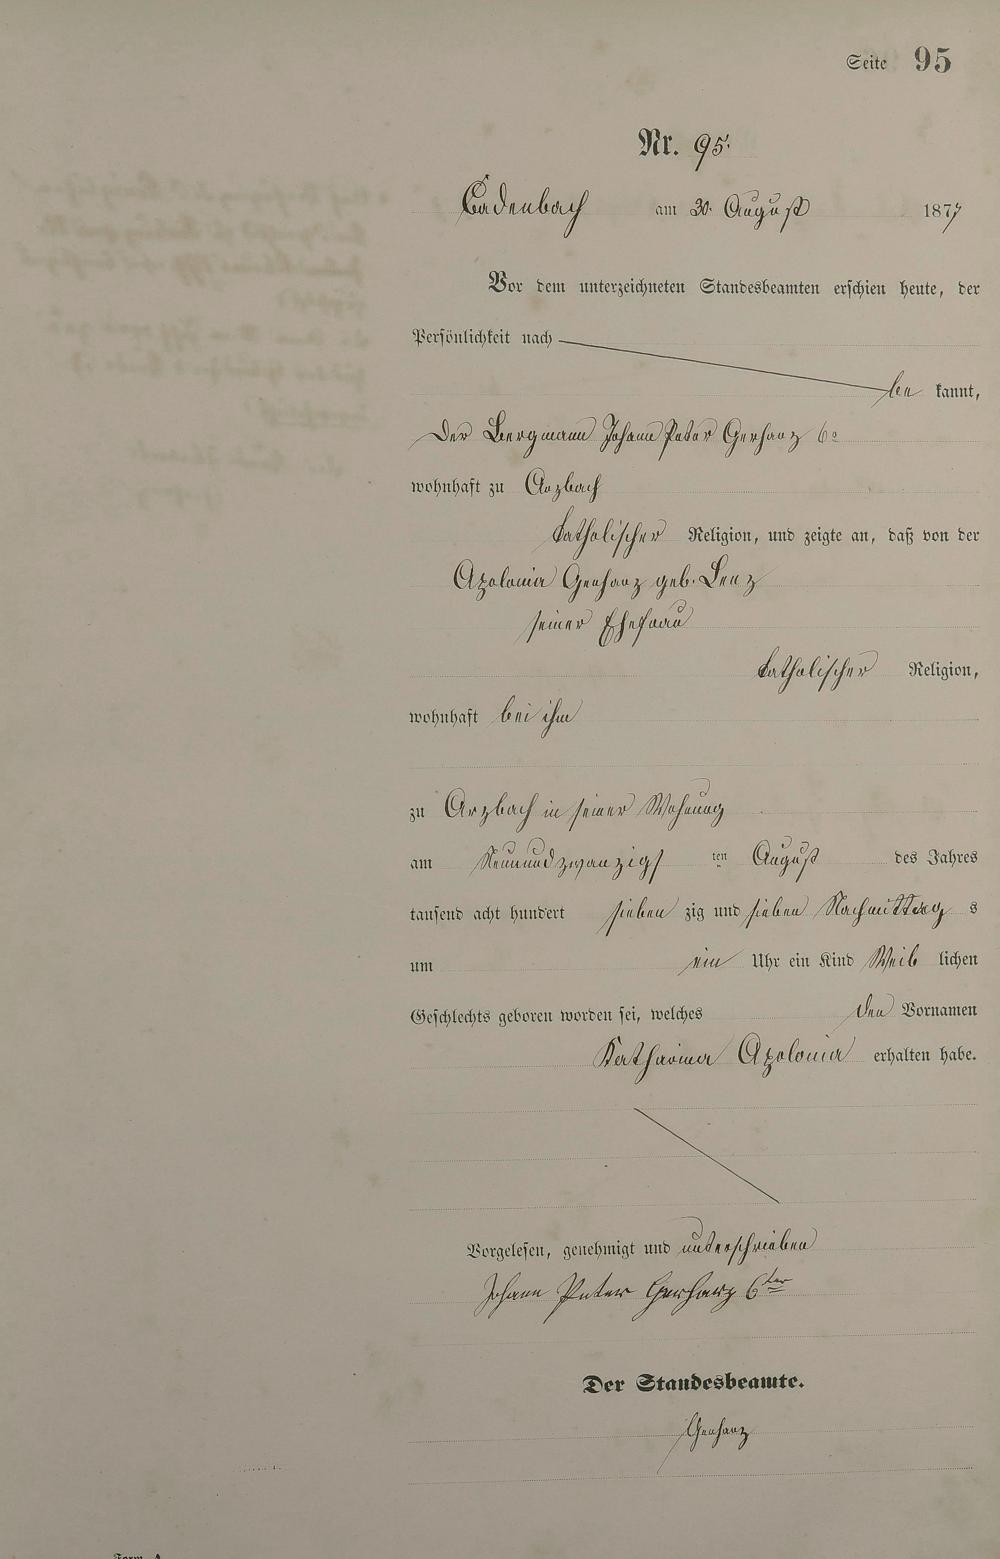 Seite 95
Nr. 95.
Cadenbach am 30. August 1877
Vor dem unterzeichneten Standesbeamten erschien heute, der
Persönlichkeit nach
be kannt,
der Bergmann Johann Peter Gerharz 6r
wohnhaft zu Arzbach
katholischer Religion, und zeigte an, daß von der
Apolonia Gerharz geb. Lenz
seiner Ehefrau
katholischer Religion,
wohnhaft bei ihm
zu Arzbach in seiner Wohnung
am Neunundzwanzigs ten August des Jahres
tausend acht hundert sieben zig und sieben Nachmittag s
um ein Uhr ein Kind Weib lichen
Geschlechts geboren worden sei, welches den Vornamen
Katharina Apolonia erhalten habe.
Vorgelesen, genehmigt und unterschrieben
Johann Peter Gerharz 6ter
Der Standesbeamte.
Gerharz
Form. A.